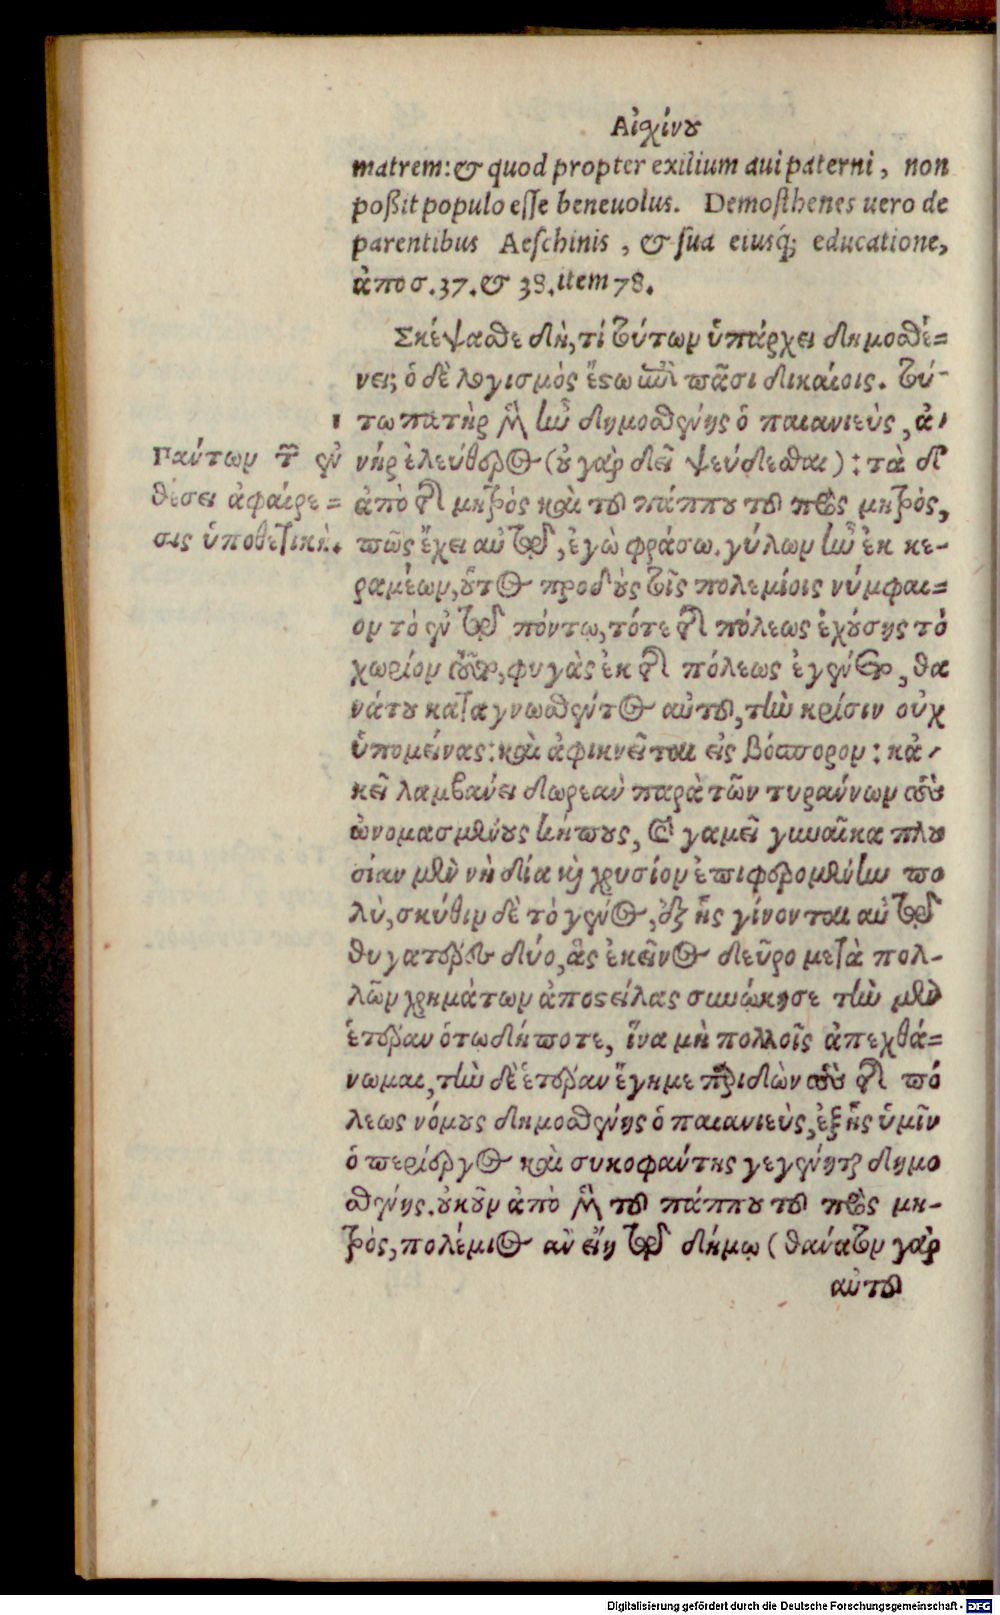 Αἰσχίνου
matrem: & quod propter exilium aui paterni, non
poßit populo esse beneuolus. Demosthenes uero de
parentibus Aeschinis, & sua eiusq́; educatione,
ἀπο σ. 37. & 38. item 78.
Σκέψασθε δὴ, τί τούτων ὑπάρχει δημοσθέ=
νει; ὁ δὲ λογισμὸς ἔστω ἐπὶ πᾶσι δικαίοις. τού-
τω πατὴρ μὲν ἦν δημοσθένης ὁ παιανιεὺς, ἀ-
νὴρ ἐλεύθερος (οὐ γὰρ δεῖ ψεύδεσθαι): τὰ δ'
ἀπὸ τῆς μητρὸς καὶ τοῦ πάππου τοῦ πρὸς μητρὸς,
πῶς ἔχει αὐτῷ, ἐγὼ φράσω. γύλων ἦν ἐκ κε-
ραμέων, οὗτος προδοὺς τοῖς πολεμίοις νύμφαι=
ον τὸ ἐν τῷ πόντῳ, τότε τῆς πόλεως ἐχούσης τὸ
χωρίον τοῦτο, φυγὰς ἐκ τῆς πόλεως ἐγένετο, θα
νάτου καταγνωσθέντος αὐτοῦ, τὴν κρίσιν οὐχ
ὑπομείνας: καὶ ἀφικνεῖται εἰς βόσπορον: κἀ-
κεῖ λαμβάνει δωρεὰν παρὰ τῶν τυράννων τοὺς
ὠνομασμένους κήπους, καὶ γαμεῖ γυναῖκα πλου
σίαν μὲν νὴ δία καὶ χρυσίον ἐπιφερομένην πο
λὺ, σκύθιν δὲ τὸ γένος, ἐξ ἧς γίνονται αὐτῷ
θυγατέρες δύο, ἃς ἐκεῖνος δεῦρο μετὰ πολ-
λῶν χρημάτων ἀποστείλας συνῴκησε τὴν μὲν
ἑτέραν ὁτῳδήποτε, ἵνα μὴ πολλοῖς ἀπεχθά=
νωμαι, τὴν δὲ ἑτέραν ἔγημε παριδὼν τοὺς τῆς πό
λεως νόμους δημοσθένης ὁ παιανιεὺς, ἐξ ἧς ὑμῖν
ὁ περίεργος καὶ συκοφάντης γεγένηται δημο
σθένης. οὐκοῦν ἀπὸ μὲν τοῦ πάππου τοῦ πρὸς μη-
τρὸς, πολέμιος ἂν εἴη τῷ δήμῳ (θάνατον γὰρ
αὐτοῦ
Πάντων τῶν ἐν
θέσει ἀφαίρε=
σις ὑποθετική.